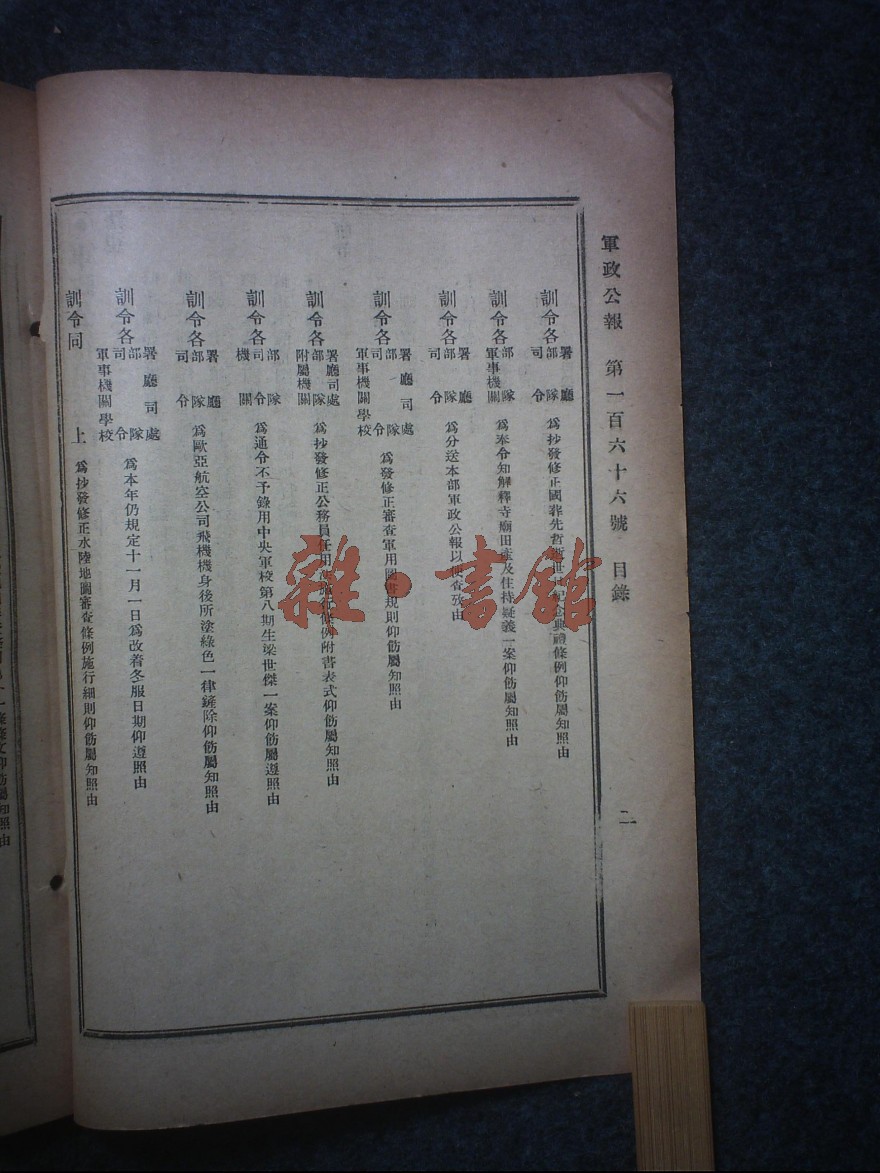 軍政公報 第一百六十六號 目錄 二
訓令各 署廳 部隊 司令 為抄發修正國葬先哲逝世紀念典禮條例仰飭屬知照由
訓令各 部隊 軍事機關 為奉令知解釋寺廟田產及住持疑義一案仰飭屬知照由
訓令各 署廳 部隊 司令 為分送本部軍政公報以便查攷由
訓令各 署廳司處 部隊 司令 軍事機關學校 為發修正審查軍用圖書規則仰飭屬知照由
訓令各 署廳司處 部隊 附屬機關 為抄發修正公務員任用法施行條例附書表式仰飭屬知照由
訓令各 部隊 司令 機關 為通令不予錄用中央軍校第八期生梁世傑一案仰飭屬遵照由
訓令各 署廳 部隊 司令 為歐亞航空公司飛機機身後所塗綠色一律鏟除仰飭屬知照由
訓令各 署廳司處 部隊 司令 軍事機關學校 為本年仍規定十一月一日為改着冬服日期仰遵照由
訓令同 上 為抄發修正水陸地圖審查條例施行細則仰飭屬知照由
雜·書館
條文仰飭屬知照由